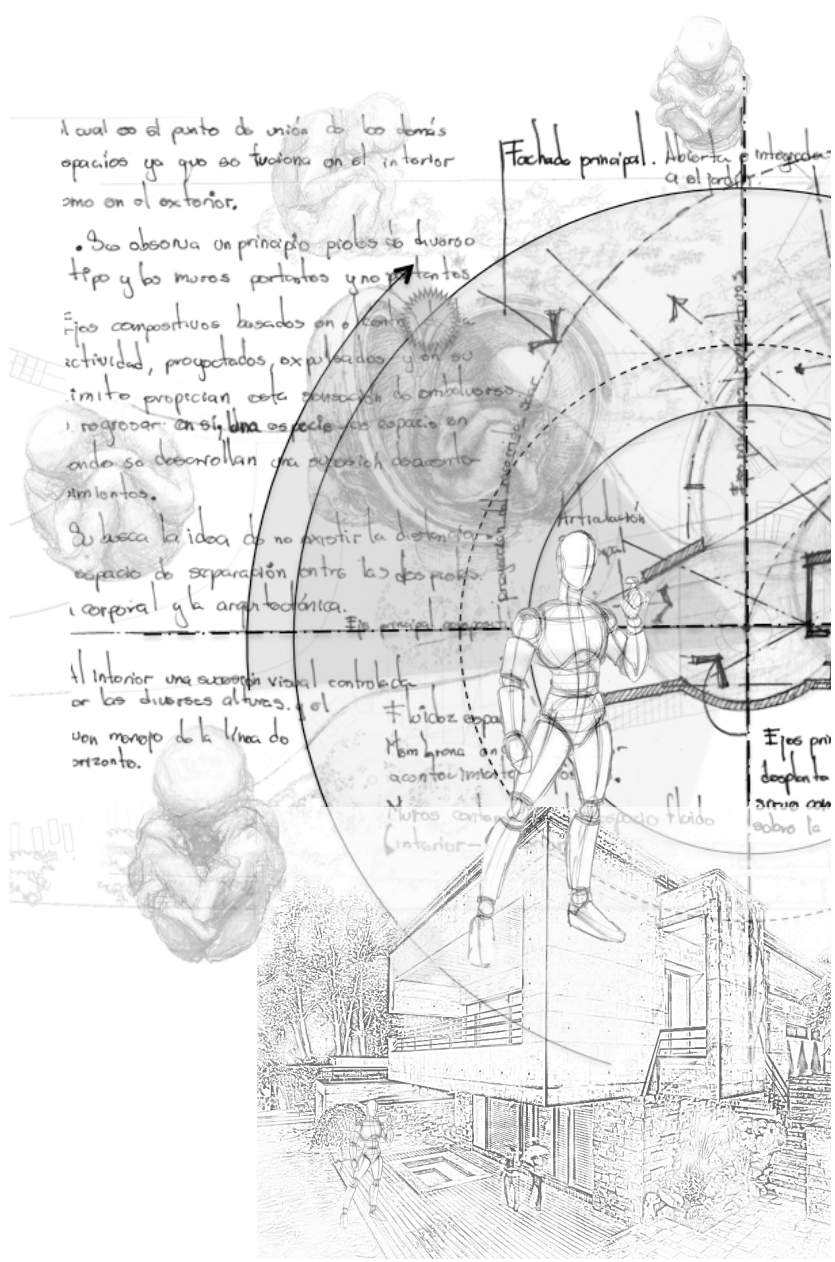 el cual es el punto de unión de los demás
espacios ya que se fusiona en el interior
como en el exterior.
• Se observa un principio pieles de diverso
tipo y los muros portantes y no portantes
Ejes compositivos basados en el
actividad, proyectados, expulsados, y en su
límite propician esta sensación de embolverse
regresar en si, una especie de espacio en
donde se desarrollan una sucesión de aconte-
cimientos.
Se busca la idea de no existir la distancia
espacio de separación entre las dos pieles.
corporal y la arquitectónica.
Al Interior una sucesión visual controlada
por las diversas alturas. y el
buen manejo de la línea de
orizonte.
Fachada principal. Abierta e integrada
a el jardín.
Ejes principales compositivos
proyección del recorrido solar
Articulación
pal
Eje principal compositi
Fluidez espa
Membrana en
acontecimiento
Muros conten espacio fluido
(interior-
Ejes prin
desplante
sobre la